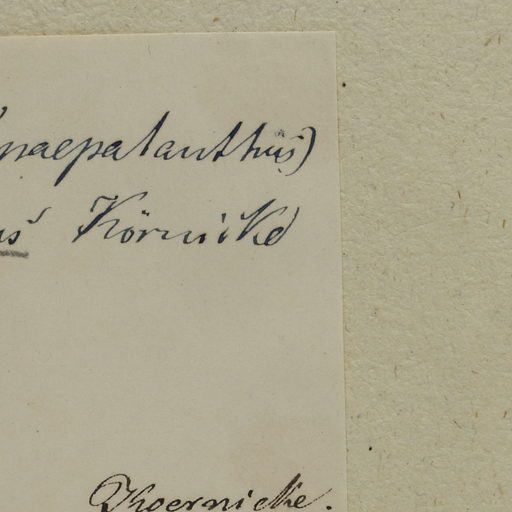 naepalanthus)
us Körnicke
Koernicke.